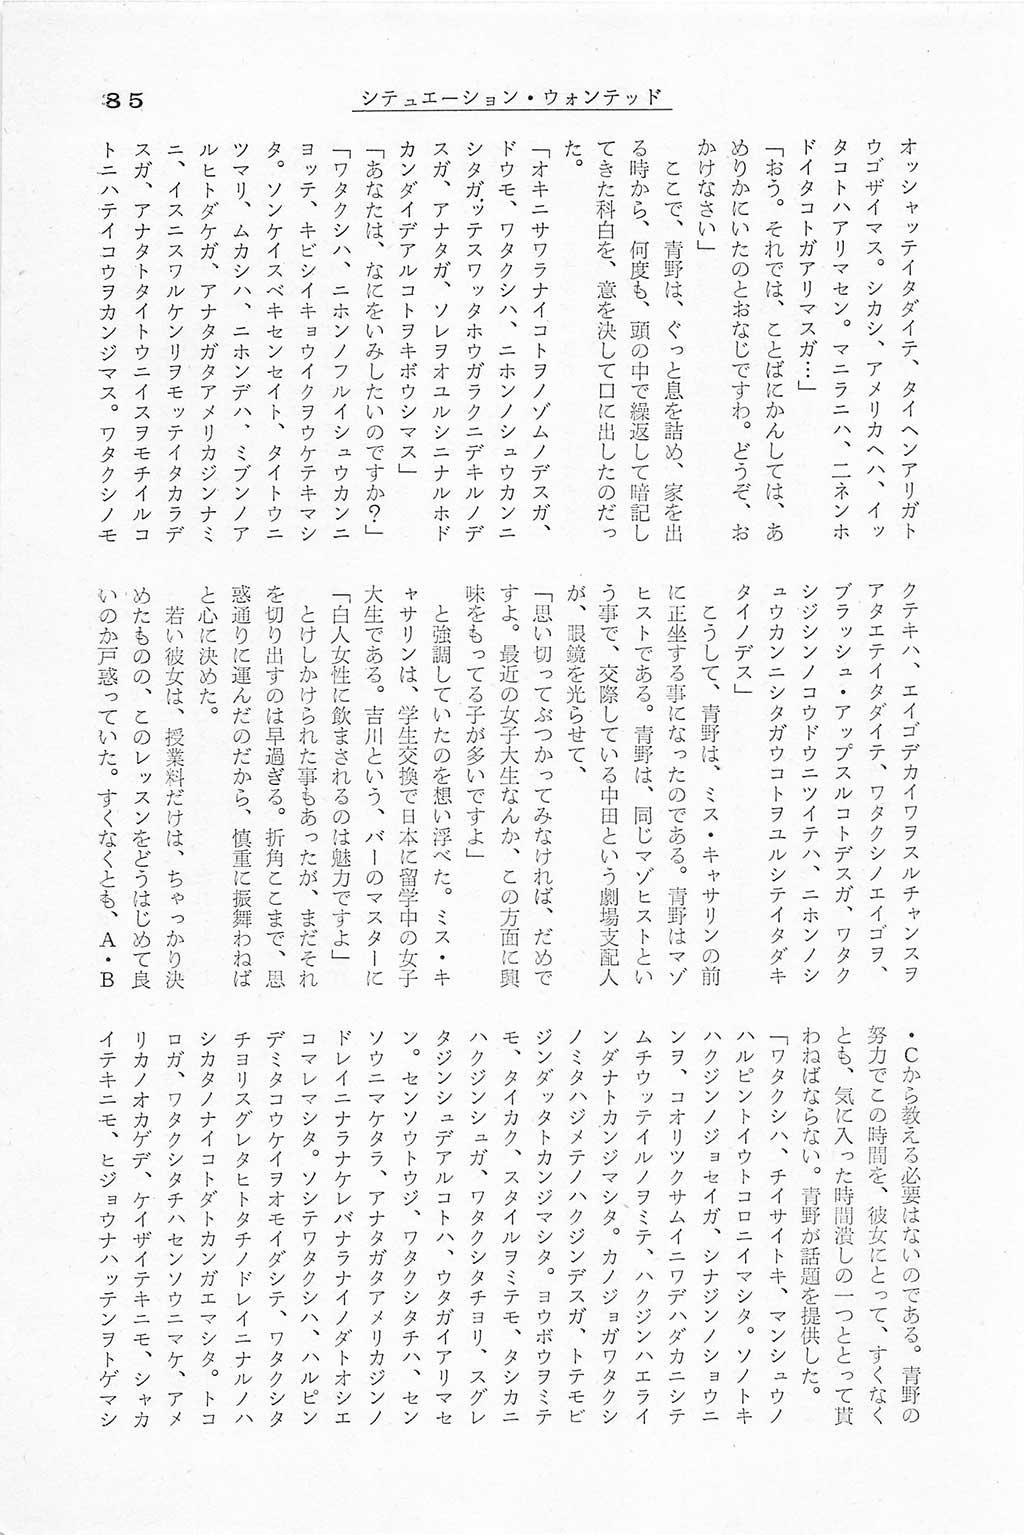 85
シテュエーション・ウォンテッド
オッシャッテイタダイテ、タイヘンアリガト
ウゴザイマス。シカシ、アメリカヘハ、イッ
タコトハアリマセン。マニラニハ、二ネンホ
ドイタコトガアリマスガ…」
「おう。それでは、ことばにかんしては、あ
めりかにいたのとおなじですわ。どうぞ、お
かけなさい」
ここで、青野は、ぐっと息を詰め、家を出
る時から、何度も、頭の中で繰返して暗記し
てきた科白を、意を決して口に出したのだっ
た。
「オキニサワラナイコトヲノゾムノデスガ、
ドウモ、ワタクシハ、ニホンノシュウカンニ
シタガッテスワッタホウガラクニデキルノデ
スガ、アナタガ、ソレヲオユルシニナルホド
カンダイデアルコトヲキボウシマス」
「あなたは、なにをいみしたいのですか?」
「ワタクシハ、ニホンノフルイシュウカンニ
ヨッテ、キビシイキョウイクヲウケテキマシ
タ。ソンケイスベキセンセイト、タイトウニ
ツマリ、ムカシハ、ニホンデハ、ミブンノア
ルヒトダケガ、アナタガタアメリカジンナミ
ニ、イスニスワルケンリヲモッテイタカラデ
スガ、アナタトタイトウニイスヲモチイルコ
トニハテイコウヲカンジマス。ワタクシノモ
クテキハ、エイゴデカイワヲスルチャンスヲ
アタエテイタダイテ、ワタクシノエイゴヲ、
ブラッシュ・アップスルコトデスガ、ワタク
シジシンノコウドウニツイテハ、ニホンノシ
ュウカンニシタガウコトヲユルシテイタダキ
タイノデス」
こうして、青野は、ミス・キャサリンの前
に正坐する事になったのである。青野はマゾ
ヒストである。青野は、同じマゾヒストとい
う事で、交際している中田という劇場支配人
が、眼鏡を光らせて、
「思い切ってぶつかってみなければ、だめで
すよ。最近の女子大生なんか、この方面に興
味をもってる子が多いですよ」
と強調していたのを想い浮べた。ミス・キ
ャサリンは、学生交換で日本に留学中の女子
大生である。吉川という、バーのマスターに
「白人女性に飲まされるのは魅力ですよ」
とけしかけられた事もあったが、まだそれ
を切り出すのは早過ぎる。折角ここまで、思
惑通りに運んだのだから、慎重に振舞わねば
と心に決めた。
若い彼女は、授業料だけは、ちゃっかり決
めたものの、このレッスンをどうはじめて良
いのか戸惑っていた。すくなくとも、A・B
・Cから教える必要はないのである。青野の
努力でこの時間を、彼女にとって、すくなく
とも、気に入った時間潰しの一つととって貰
わねばならない。青野が話題を提供した。
「ワタクシハ、チイサイトキ、マンシュウノ
ハルピントイウトコロニイマシタ。ソノトキ
ハクジンノジョセイガ、シナジンノショウニ
ンヲ、コオリツクサムイニワデハダカニシテ
ムチウッテイルノヲミテ、ハクジンハエライ
ンダナトカンジマシタ。カノジョガワタクシ
ノミタハジメテノハクジンデスガ、トテモビ
ジンダッタトカンジマシタ。ヨウボウヲミテ
モ、タイカク、スタイルヲミテモ、タシカニ
ハクジンシュガ、ワタクシタチヨリ、スグレ
タジンシュデアルコトハ、ウタガイアリマセ
ン。センソウトウジ、ワタクシタチハ、セン
ソウニマケタラ、アナタガタアメリカジンノ
ドレイニナラナケレバナラナイノダトオシエ
コマレマシタ。ソシテワタクシハ、ハルピン
デミタコウケイヲオモイダシテ、ワタクシタ
チヨリスグレタヒトタチノドレイニナルノハ
シカタノナイコトダトカンガエマシタ。トコ
ロガ、ワタクシタチハセンソウニマケ、アメ
リカノオカゲデ、ケイザイテキニモ、シャカ
イテキニモ、ヒジョウナハッテンヲトゲマシ